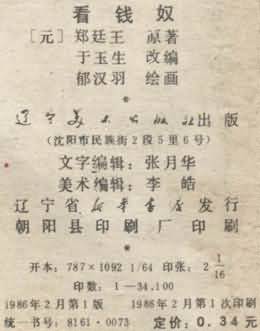 看钱奴
〔元〕郑廷玉 原著
于玉生 改编
郁汉羽 绘画
辽宁美术出版社出版
(沈阳市民族街2段5里6号)
文字编辑:张月华
美术编辑:李皓
辽宁省新华书店发行
朝阳县印刷厂印刷
开本:787×1092 1/64 印张:2 1/16
印数:1—34,100
1986年2月第1版 1986年2月第1次印刷
统一书号:8161·0073 定价:0.34元